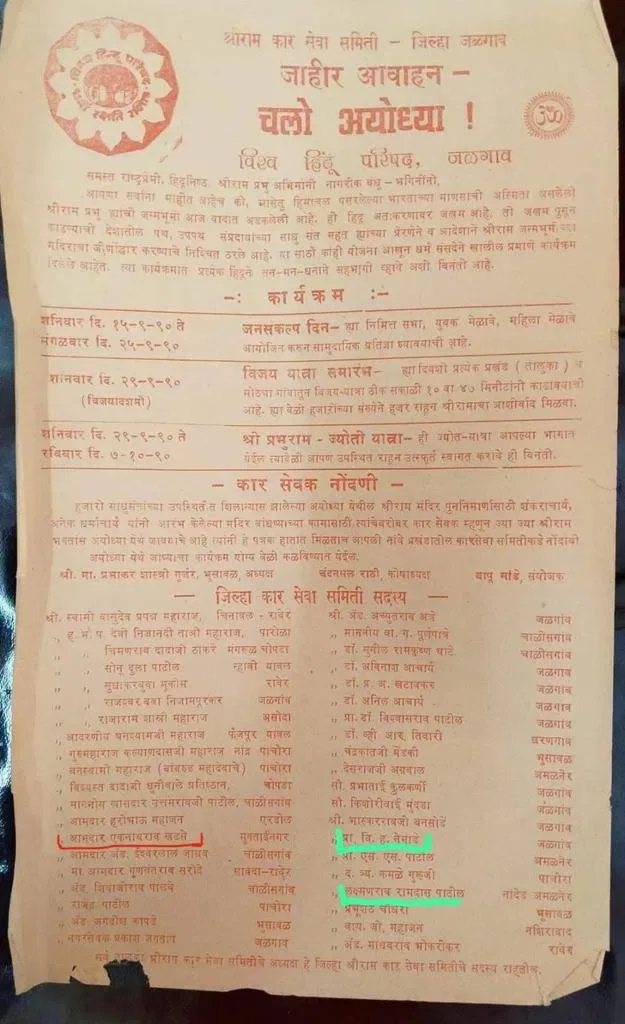 विश्व हिन्दू परिषद
धर्मो रक्षति रक्षितः
श्रीराम कार सेवा समिती - जिल्हा जळगाव
जाहीर आवाहन -
चलो अयोध्या !
ॐ
विश्व हिंदू परिषद, जळगाव
समस्त राष्ट्रप्रेमी, हिंदूनिष्ठ श्रीराम प्रभू अभिमानी नागरीक बंधु - भगिनींनो,
आपणा सर्वांना माहीत आहेच की, आसेतु हिमाचल पसरलेल्या भारताच्या माणसाची अस्मिता असलेली
श्रीराम प्रभू ह्यांची जन्मभूमी आज वादात अडकलेली आहे. ही हिंदू अंतःकरणावर जखम आहे. ती जखम पुसून
काढण्याची देशातील पंथ, उपपंथ संप्रदायांच्या साधु संत महंत ह्यांच्या प्रेरणेने व आदेशाने श्रीराम जन्मभूमीच्या
मंदिराचा जीर्णोद्धार करण्याचे निश्चित ठरले आहे. या साठी कांही योजना आखून धर्म संसदेने खालील प्रमाणे कार्यक्रम
दिलेले आहेत. त्या कार्यक्रमात प्रत्येक हिंदूने तन-मन-धनाने सहभागी व्हावे अशी विनंती आहे.
-: कार्यक्रम :-
शनिवार दि. १५-९-९० ते जनसंकल्प दिन- ह्या निमित्त सभा, युवक मेळावे, महिला मेळावे
मंगळवार दि. २५-९-९० आयोजित करुन सामुदायिक प्रतिज्ञा घ्यावयाची आहे.
शनिवार दि. २९-९-९० विजय यात्रा समारंभ- ह्या दिवशी प्रत्येक प्रखंड (तालुका) व
(विजयादशमी) मोठ्या गांवातून विजय-यात्रा ठीक सकाळी १० वा ४७ मिनीटांनी काढावयाची
आहे. ह्या वेळी हजारोंच्या संख्येने हजर राहून श्रीरामाचा आशीर्वाद मिळवा.
शनिवार दि. २९-९-९० ते श्री प्रभुराम - ज्योती यात्रा- ही ज्योत-यात्रा आपल्या भागात
रविवार दि. ७-१०-९० येईल त्यावेळी आपण उपस्थित राहून उत्स्फूर्त स्वागत करावे ही विनंती.
- कार सेवक नोंदणी -
हजारो साधुसंतांच्या उपस्थितीत शिलान्यास झालेल्या अयोध्या येथील श्रीराम मंदिर पुनर्निर्माणासाठी शंकराचार्य,
अनेक धर्माचार्य यांनी आरंभ केलेल्या मंदिर बांधण्याच्या कामासाठी, त्यांचेबरोबर कार सेवक म्हणून ज्या ज्या श्रीराम
भक्तांस अयोध्या येथे जावयाचे आहे त्यांनी हे पत्रक हातात मिळताच आपली नांवे प्रखंडातील कारसेवा समितीकडे नोंदावी
अयोध्या येथे जाण्याचा कार्यक्रम योग्य वेळी कळविण्यात येईल.
श्री. मा. प्रभाकर शास्त्री गुर्जर, भुसावळ, अध्यक्ष चंदनमल राठी, कोषाध्यक्ष बापू मांडे, संयोजक
— जिल्हा कार सेवा समिती सदस्य —
श्री. स्वामी वासुदेव प्रपन्न महाराज, चिनावल - रावेर
,, ह. भ. प. देवी निजानंदी ताओ महाराज, पारोळा
,, चिमणराव दादाजी ठाकरे मंगरूळ चोपडा
,, सोनू दुला पाटील न्हावी यावल
,, सुधाकरबुवा मुकीम रावेर
,, राजेश्वर बुवा निजामपूरकर जळगांव
,, राजाराम शास्त्री महाराज असोदा
,, आदरणीय घनश्यामजी महाराज फैजपूर यावल
,, गुरुमहाराज कल्याणदासजी महाराज नांद्र पाचोरा
,, वनस्वामी महाराज (बांबरुड महादेवाचे) पाचोरा
,, विश्वस्त दादाजी धुनीवाले प्रतिष्ठान, चोपडा
,, माननीय खासदार उत्तमरावजी पाटील, चाळीसगांव
,, आमदार हरीभाऊ महाजन एरंडोल
,, आमदार एकनाथराव खडसे मुक्ताईनगर
,, आमदार अॅड. ईश्वरलाल जाधव चाळीसगांव
,, मा आमदार गुणवंतराव सरोदे सावदा-रावेर
,, अॅड शिवाजीराव पाटील चाळीसगांव
,, राजेंद्र पाटील पाचोरा
,, अॅड जगदीश कापडे भुसावळ
,, नगरसेवक प्रकाश जगताप जळगांव
श्री. अॅड. अच्युतराव अत्रे जळगांव
,, माननीय वा. ग. पूर्णपात्रे चाळीसगांव
,, डॉ. सुनील रामकृष्ण घाटे चाळीसगांव
,, डॉ. अविनाश आचार्य जळगांव
,, डॉ. प्र. अ. खटावकर जळगांव
,, डॉ. अनिल आचार्य जळगांव
,, प्रा. डॉ. विश्वासराव पाटील जळगांव
,, डॉ. व्ही आर. तिवारी धरणगांव
,, चंद्रकांतजी मेंडकी भुसावळ
,, देसराजजी अग्रवाल अमळनेर
सौ. प्रभाताई कुलकर्णी जळगांव
सौ. किशोरीबाई मुंदडा जळगांव
श्री. भास्करराव बनसोडे जळगांव
,, प्रा. वि. ह. नेमाडे जळगांव
,, प्रा. एस. एस. पाटील अमळनेर
,, द. त्र्य. कमळे गुरूजी पाचोरा
,, लक्ष्मणराव रामदास पाटील नांदेड अमळनेर
,, प्रभूशेठ चौधरी भुसावळ
,, वाय. जी. महाजन नशिराबाद
,, अॅड. माधवराव भोकरीकर रावेर
सर्व तालुका श्रीराम कार सेवा समितीचे अध्यक्ष हे जिल्हा श्रीराम कार सेवा समितीचे सदस्य राहतील.